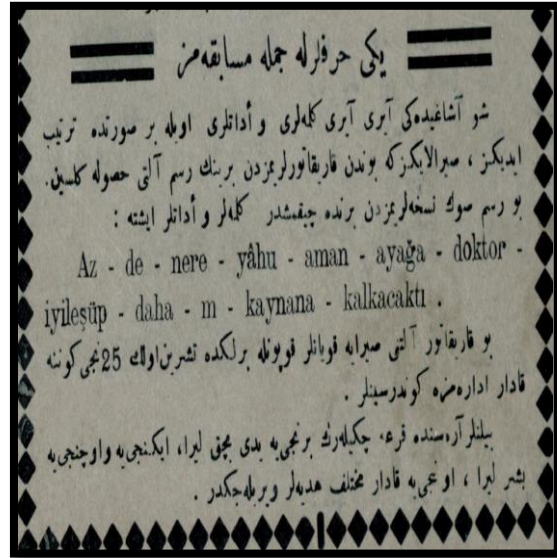 یکی حرفلرله جمله مسابقه‌مز
شو آشاغیده‌کی آیری آیری کلمه‌لری و أداتلری اویله بر صورتده ترتیب
ایدیکز ، صیرالایکز که بوندن قاریقاتورلریمزدن برینك رسم آلتی حصوله کلسین.
بو رسم صوك نسخه‌لریمزدن برنده چیقمشدر کلمه‌لر و أداتلر ایشته :
Az - de - nere - yâhu - aman - ayağa - doktor -
iyileşüp - daha - m - kaynana - kalkacaktı .
بو قاریقاتور آلتنی صیرایه قویانلر قوپونله برلکده تشرین‌اولك 25نجی کوننه
قادار اداره‌مزه کوندرسینلر .
بیلنلر آره‌سنده قرعه چکیله‌رك برنجی‌یه یدی بچق لیرا، ایکنجی‌یه واوچنجی‌یه
بشر لیرا ، اوننجی‌یه قادار مختلف هدیه‌لر ویریله‌جکدر .